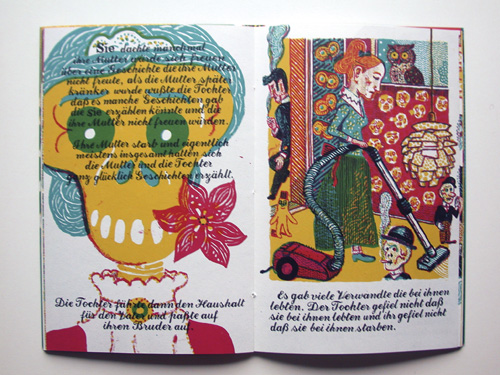 Sie dachte manchmal
ihre Mutter würde sich freuen
über eine Geschichte die ihre Mutter
nicht freute, als die Mutter später
kränker wurde wußte die Tochter
daß es manche Geschichten gab
die sie erzählen könnte und die
ihre Mutter nicht freuen würden.
Ihre Mutter starb und eigentlich
meistens insgesamt hatten sich
die Mutter und die Tochter
ganz glücklich Geschichten erzählt.
Die Tochter führte dann den Haushalt
für den Vater und paßte auf
ihren Bruder auf.
Es gab viele Verwandte die bei ihnen
lebten. Der Tochter gefiel nicht daß
sie bei ihnen lebten und ihr gefiel nicht
daß sie bei ihnen starben.